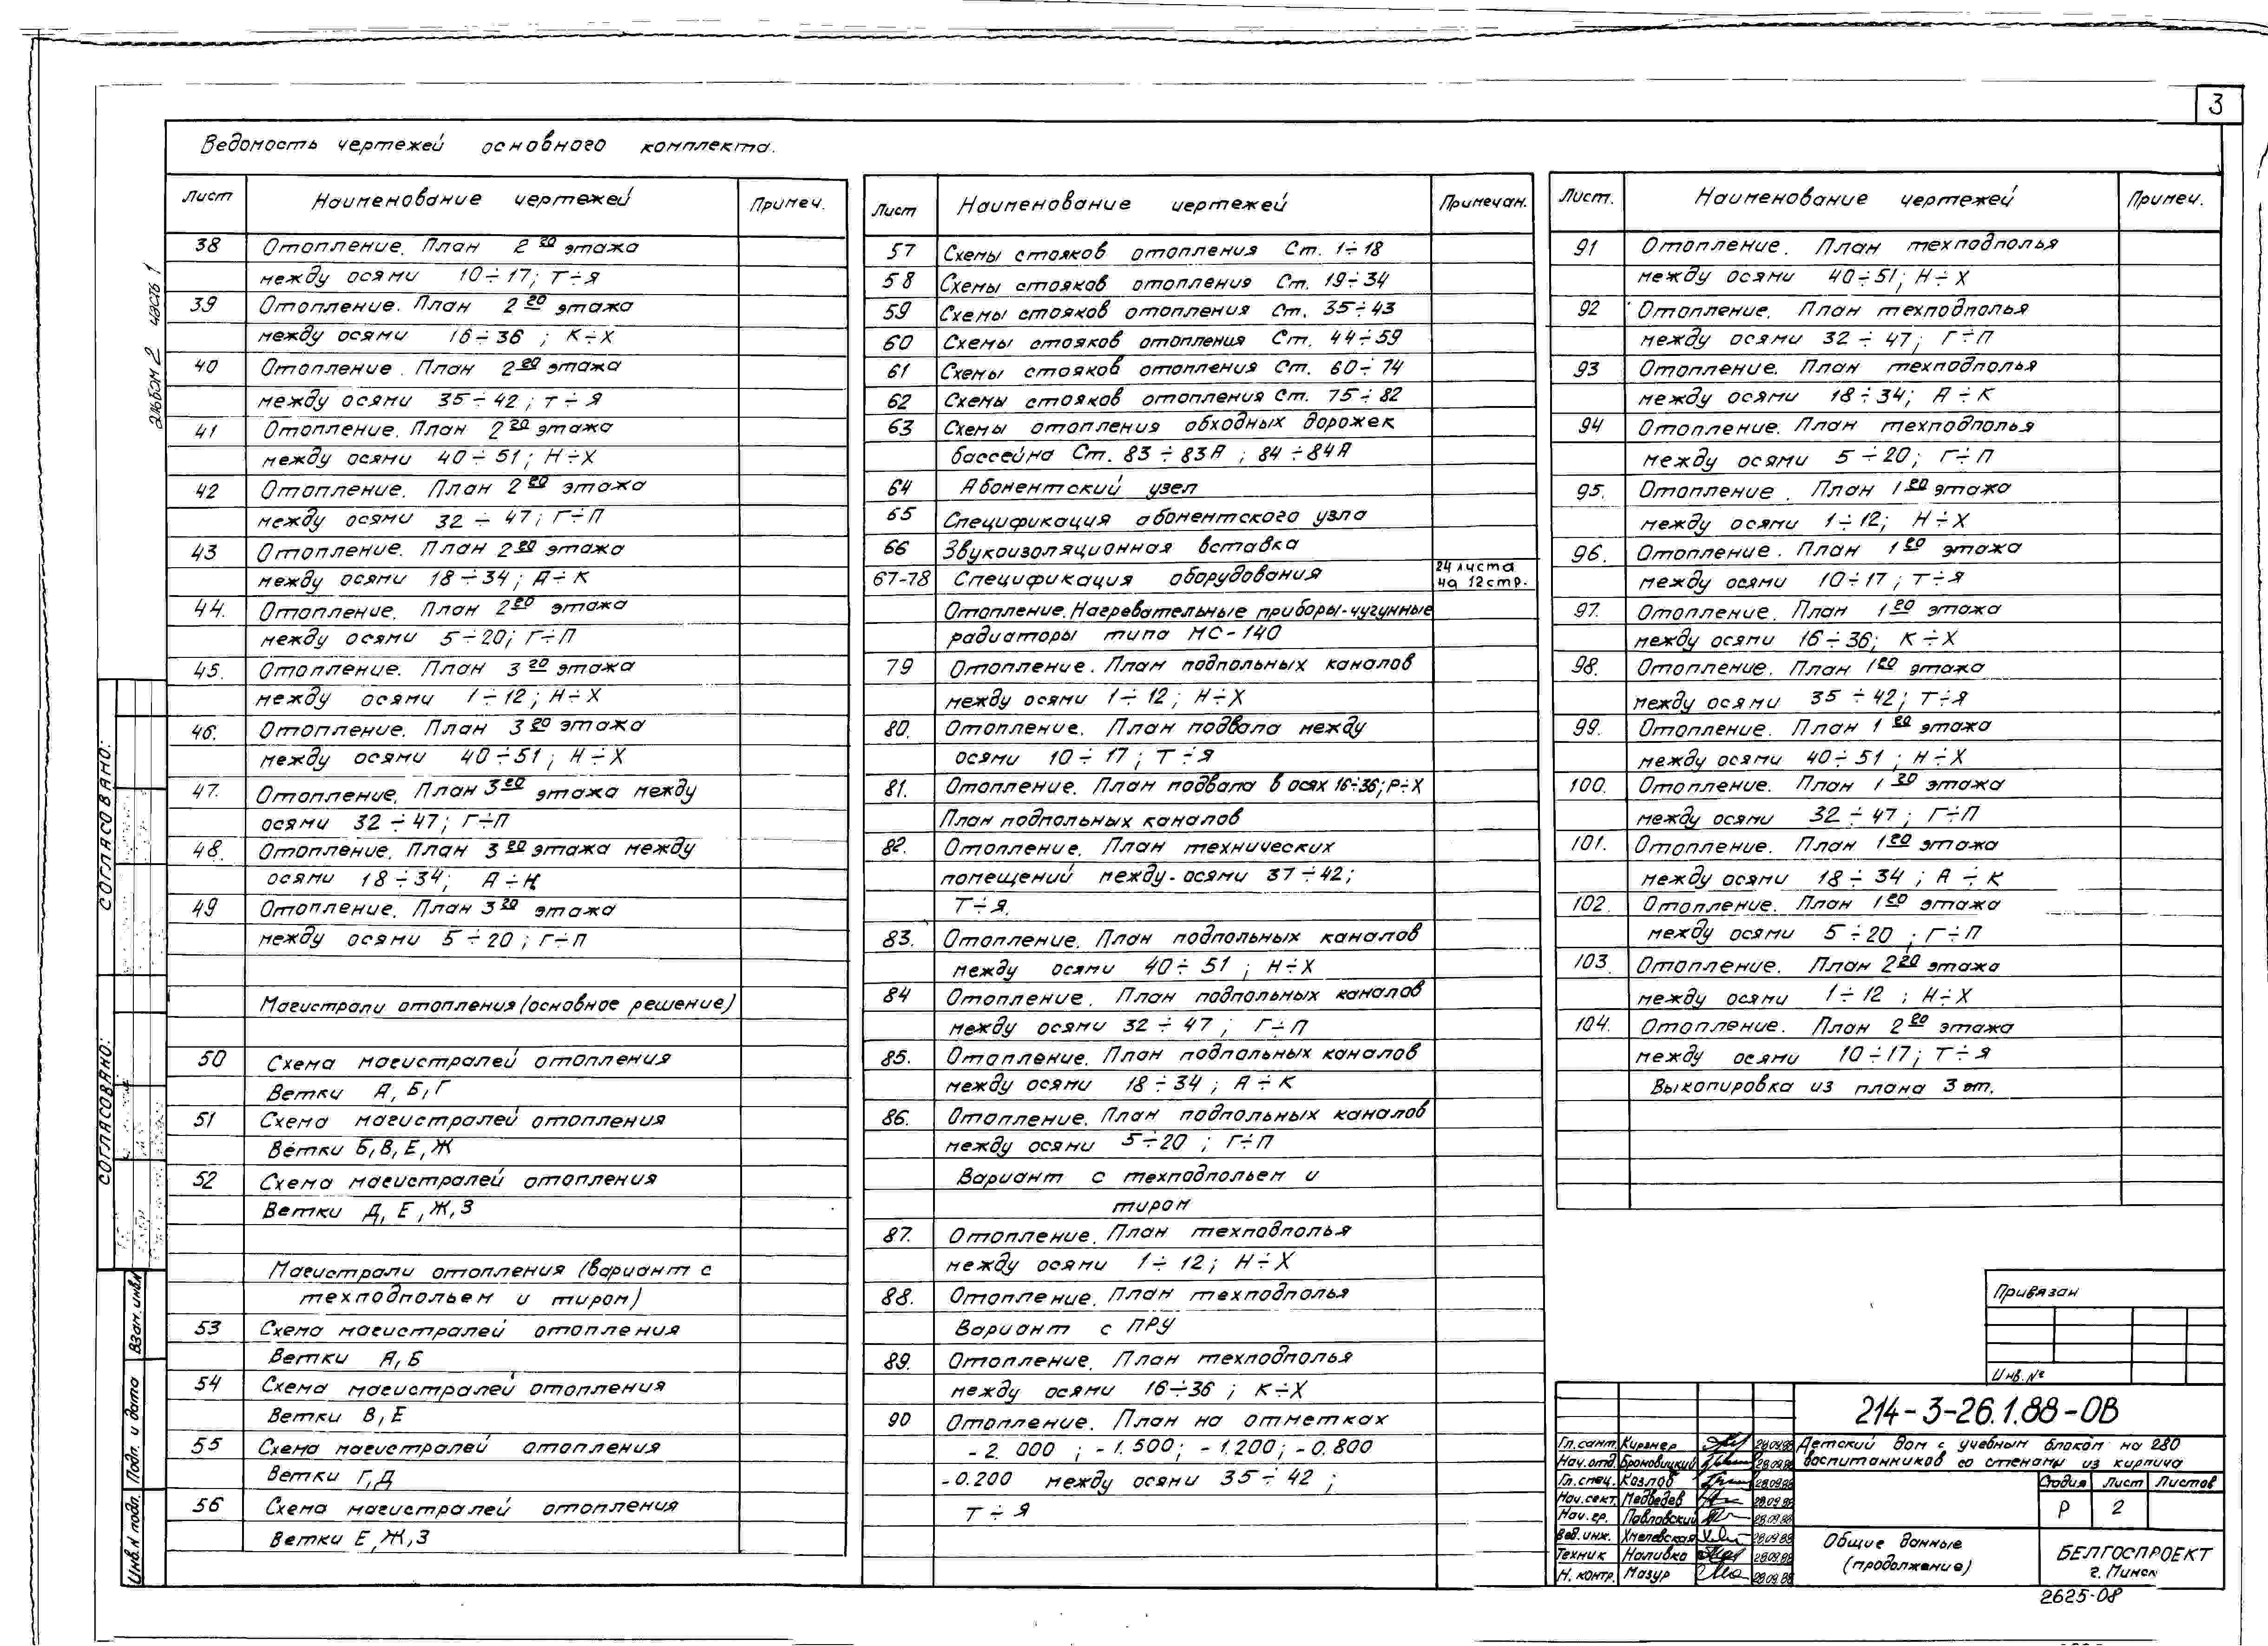 3
Ведомость чертежей основного комплекта.
Альбом 2 часть 1
Лист Наименование чертежей Примеч.
38 Отопление. План 2го этажа
между осями 10÷17; Т÷Я
39 Отопление. План 2го этажа
между осями 16÷36 ; К÷Х
40 Отопление. План 2го этажа
между осями 35÷42 ; Т÷Я
41 Отопление. План 2го этажа
между осями 40÷51; Н÷Х
42 Отопление. План 2го этажа
между осями 32÷47; Г÷П
43 Отопление. План 2го этажа
между осями 18÷34; А÷К
44. Отопление. План 2го этажа
между осями 5÷20; Г÷П
45. Отопление. План 3го этажа
между осями 1÷12; Н÷Х
46. Отопление. План 3го этажа
между осями 40÷51; Н÷Х
47. Отопление. План 3го этажа между
осями 32÷47; Г÷П
48. Отопление. План 3го этажа между
осями 18÷34; А÷К
49 Отопление. План 3го этажа
между осями 5÷20; Г÷П
Магистрали отопления (основное решение)
50 Схема магистралей отопления
Ветки А, Б, Г
51 Схема магистралей отопления
Ветки Б, В, Е, Ж
52 Схема магистралей отопления
Ветки Д, Е, Ж, З
Магистрали отопления (вариант с
техподпольем и тиром)
53 Схема магистралей отопления
Ветки А, Б
54 Схема магистралей отопления
Ветки В, Е
55 Схема магистралей отопления
Ветки Г, Д
56 Схема магистралей отопления
Ветки Е, Ж, З
Лист Наименование чертежей Примечан.
57 Схемы стояков отопления Ст. 1÷18
58 Схемы стояков отопления Ст. 19÷34
59 Схемы стояков отопления Ст. 35÷43
60 Схемы стояков отопления Ст. 44÷59
61 Схемы стояков отопления Ст. 60÷74
62 Схемы стояков отопления Ст. 75÷82
63 Схемы отопления обходных дорожек
бассейна Ст. 83÷83А ; 84÷84А
64 Абонентский узел
65 Спецификация абонентского узла
66 Звукоизоляционная вставка
67-78 Спецификация оборудования 24 листа на 12 стр.
Отопление. Нагревательные приборы-чугунные
радиаторы типа МС-140
79 Отопление. План подпольных каналов
между осями 1÷12; Н÷Х
80. Отопление. План подвала между
осями 10÷17; Т÷Я
81. Отопление. План подвала в осях 16÷36; Р÷Х
План подпольных каналов
82. Отопление. План технических
помещений между осями 37÷42;
Т÷Я.
83. Отопление. План подпольных каналов
между осями 40÷51 ; Н÷Х
84 Отопление. План подпольных каналов
между осями 32÷47; Г÷П
85. Отопление. План подпольных каналов
между осями 18÷34 ; А÷К
86. Отопление. План подпольных каналов
между осями 5÷20 ; Г÷П
Вариант с техподпольем и
тиром
87. Отопление. План техподполья
между осями 1÷12; Н÷Х
88. Отопление. План техподполья
Вариант с ПРУ
89. Отопление. План техподполья
между осями 16÷36 ; К÷Х
90 Отопление. План на отметках
-2.000 ; -1.500; -1.200; -0.800
-0.200 между осями 35÷42 ;
Т÷Я
Лист. Наименование чертежей Примеч.
91 Отопление. План техподполья
между осями 40÷51; Н÷Х
92 Отопление. План техподполья
между осями 32÷47; Г÷П
93 Отопление. План техподполья
между осями 18÷34; А÷К
94 Отопление. План техподполья
между осями 5÷20; Г÷П
95. Отопление. План 1го этажа
между осями 1÷12; Н÷Х
96. Отопление. План 1го этажа
между осями 10÷17 ; Т÷Я
97. Отопление. План 1го этажа
между осями 16÷36; К÷Х
98. Отопление. План 1го этажа
между осями 35÷42; Т÷Я
99. Отопление. План 1го этажа
между осями 40÷51 ; Н÷Х
100. Отопление. План 1го этажа
между осями 32÷47; Г÷П
101. Отопление. План 1го этажа
между осями 18÷34 ; А÷К
102. Отопление. План 1го этажа
между осями 5÷20 ; Г÷П
103. Отопление. План 2го этажа
между осями 1÷12 ; Н÷Х
104. Отопление. План 2го этажа
между осями 10÷17; Т÷Я
Выкопировка из плана 3 эт.
СОГЛАСОВАНО:
СОГЛАСОВАНО:
Взам. инв.н
Подп. и дата
Инв.н подл.
Привязан
Инв. №
214-3-26.1.88-ОВ
Детский дом с учебным блоком на 280
воспитанников со стенами из кирпича
Гл.сант. Кирзнер 28.09.88
Нач.отд. Броновицкий 28.09.88
Гл.спец. Козлов 28.09.88
Нач.сект. Медведев 28.09.88
Нач.гр. Павловский 28.09.88
Вед.инж. Хмелевская 28.09.88
Техник Наливко 28.09.88
Н. контр. Мазур 28.09.88
Стадия Лист Листов
Р 2
Общие данные
(продолжение)
БЕЛГОСПРОЕКТ
г. Минск
2625-08